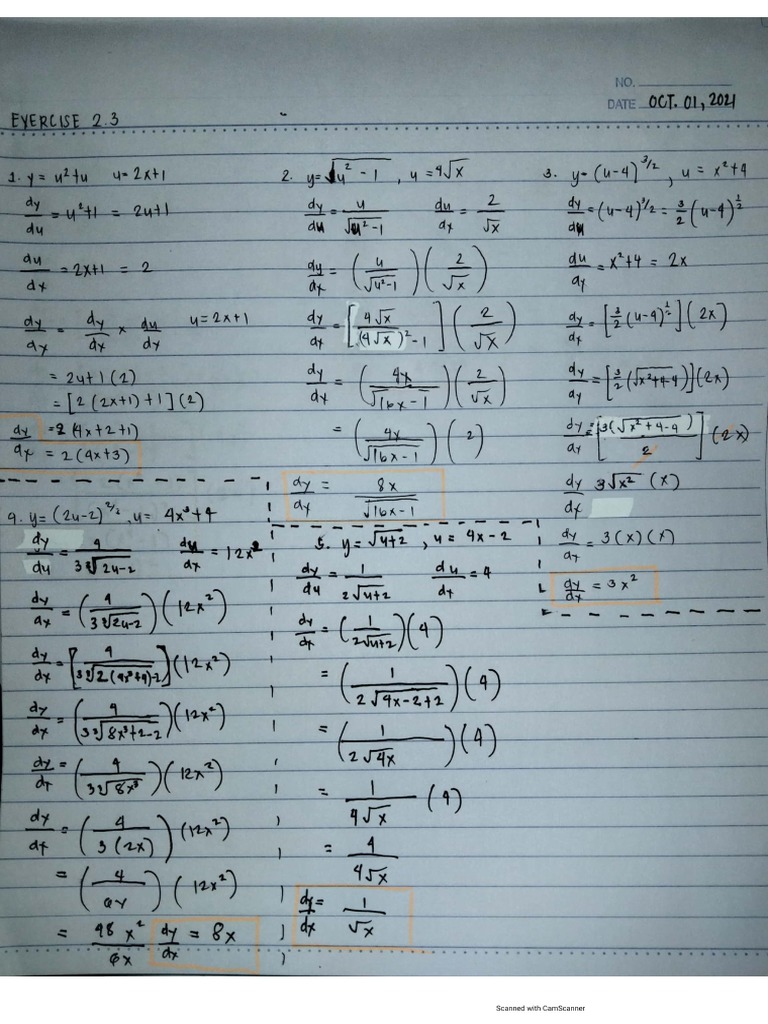 NO.
DATE OCT. 01, 2021
EXERCISE 2.3
1. y = u²+u   u = 2x+1
dy/du = u²+1 = 2u+1
du/dx = 2x+1 = 2
dy/dx = dy/dx × du/dx   u = 2x+1
= 2u+1 (2)
= [2(2x+1)+1](2)
dy/dx = 2(4x+2+1)
= 2(4x+3)
2. y = √(u²-1), u = 4√x
dy/du = u/√(u²-1)   du/dx = 2/√x
dy/dx = (u/√(u²-1))(2/√x)
dy/dx = [4√x/(4√x)²-1](2/√x)
dy/dx = (4x/√(16x-1))(2/√x)
= (4x/√(16x-1))(2)
dy/dx = 8x/√(16x-1)
3. y = (u-4)^3/2, u = x²+4
dy/du = (u-4)^3/2 = 3/2(u-4)^1/2
du/dx = x²+4 = 2x
dy/dx = [3/2(u-4)^1/2](2x)
dy/dx = [3/2(√(x²+4-4))](2x)
dy/dx = [3(√(x²+4-4))/2](2x)
dy/dx 3√x² (x)
dy/dx = 3(x)(x)
dy/dx = 3x²
4. y = (2u-2)^2/3, u = 4x³+4
dy/du = 4/3∛(2u-2)   du/dx = 12x²
dy/dx = (4/3∛(2u-2))(12x²)
dy/dx = [4/3∛(2(4x³+4)-2)](12x²)
dy/dx = (4/3∛(8x³+2-2))(12x²)
dy/dx = (4/3∛(8x³))(12x²)
dy/dx = (4/3(2x))(12x²)
= (4/6x)(12x²)
= 48x²/6x   dy/dx = 8x
5. y = √(u+2), u = 4x-2
dy/du = 1/2√(u+2)   du/dx = 4
dy/dx = (1/2√(u+2))(4)
= (1/2√(4x-2+2))(4)
= (1/2√(4x))(4)
= 1/4√x (4)
= 4/4√x
dy/dx = 1/√x
Scanned with CamScanner